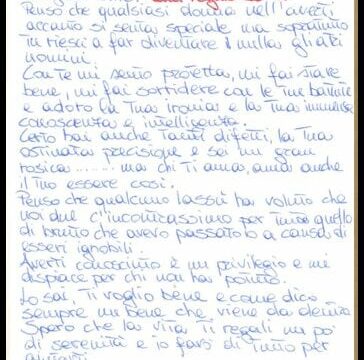 Penso che qualsiasi donna nell'averti
accanto si senta speciale ma soprattutto
tu riesci a far diventare il nulla gli altri
uomini.
Con te mi sento protetta, mi fai stare
bene, mi fai sorridere con le tue battute
e adoro la tua ironia e la tua immensa
conoscenza e intelligenza.
Certo hai anche tanti difetti, la tua
ostinata precisione e sei un gran
rosica ........ ma chi ti ama, ama anche
il tuo essere così.
Penso che qualcuno lassù ha voluto che
noi due c'incontrassimo per tutto quello
di brutto che avevo passato a causa di
esseri ignobili.
Averti conosciuto è un privilegio e mi
dispiace per chi non ha potuto.
Lo sai, ti voglio bene e come dico
sempre un bene che viene da dentro
Spero che la vita ti regali un po'
di serenità e io farò di tutto per